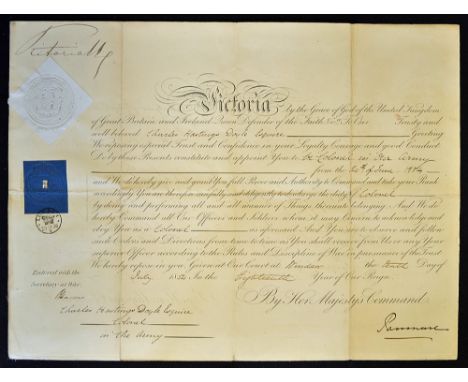 Victoria R
Victoria by the Grace of God of the United Kingdom
of Great Britain and Ireland Queen Defender of the Faith &c. To Our Trusty and
well beloved Charles Hastings Doyle Esquire Greeting
We reposing especial Trust and Confidence in your Loyalty Courage and good Conduct
Do by these Presents constitute and appoint You to be Colonel in Our Army
from the of June 1854
and We do hereby give and grant you full Power and Authority to Command and take your Rank
accordingly You are therefore carefully and diligently to discharge the duty of Colonel
by doing and performing all and all manner of Things thereunto belonging And We do
hereby Command all Our Officers and Soldiers whom it may Concern to acknowledge and
obey You as a Colonel as aforesaid And You are to observe and follow
such Orders and Directions from time to time as You shall receive from Us or any Your
superior Officer according to the Rules and Discipline of War in pursuance of the Trust
We hereby repose in you Given at Our Court at Windsor the Tenth Day of
July 185 In the Eighteenth Year of Our Reign
Entered with the
Secretary at War
By Her Majesty's Command
Charles Hastings Doyle Esquire
Colonel
in the Army
Panmure